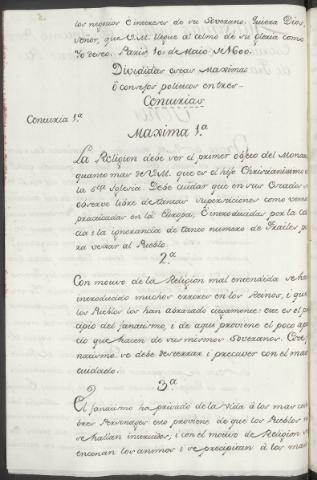 los negocios é intereses de su Soverano. Quiera Dios,
Señor, que V.M. llegue al colmo de su gloria como
Yo deseo. Paris, 10 de Maio de 1600.
Divididas estas Maximas
ô consejos politicos en tres
Centurias
Centuria 1.ª
Maxima 1.ª
La Religion debe ser el primer objeto del Monar
quanto mas de V.M. que es el hijo Christianisimo de
la Sta Iglesia. Debe cuidar que en sus Estados se
observe libre de tantas supersticiones como vemos
practicadas en la Europa, é introducidas por la
cia i la ignorancia de tanto numero de Frailes pa
ra vexar al Pueblo.
2.ª
Con motivo de la Religion mal entendida se han
introducido muchos errores en los Reinos, i que
los Pueblos los han abrazado ciegamente: este es el prin
cipio del fanatismo, i de aqui proviene el poco apre
cio que hacen de sus mismos Soveranos. Este
natismo se debe desterrar i precaver con el maior
cuidado.
3.ª
El fanatismo ha privado de la vida â los mas cele
bres Personages: esto proviene de que los Pueblos
se hallan imbuidos, i con el motivo de Religion se
enconan los animos i se precipitan â los mas